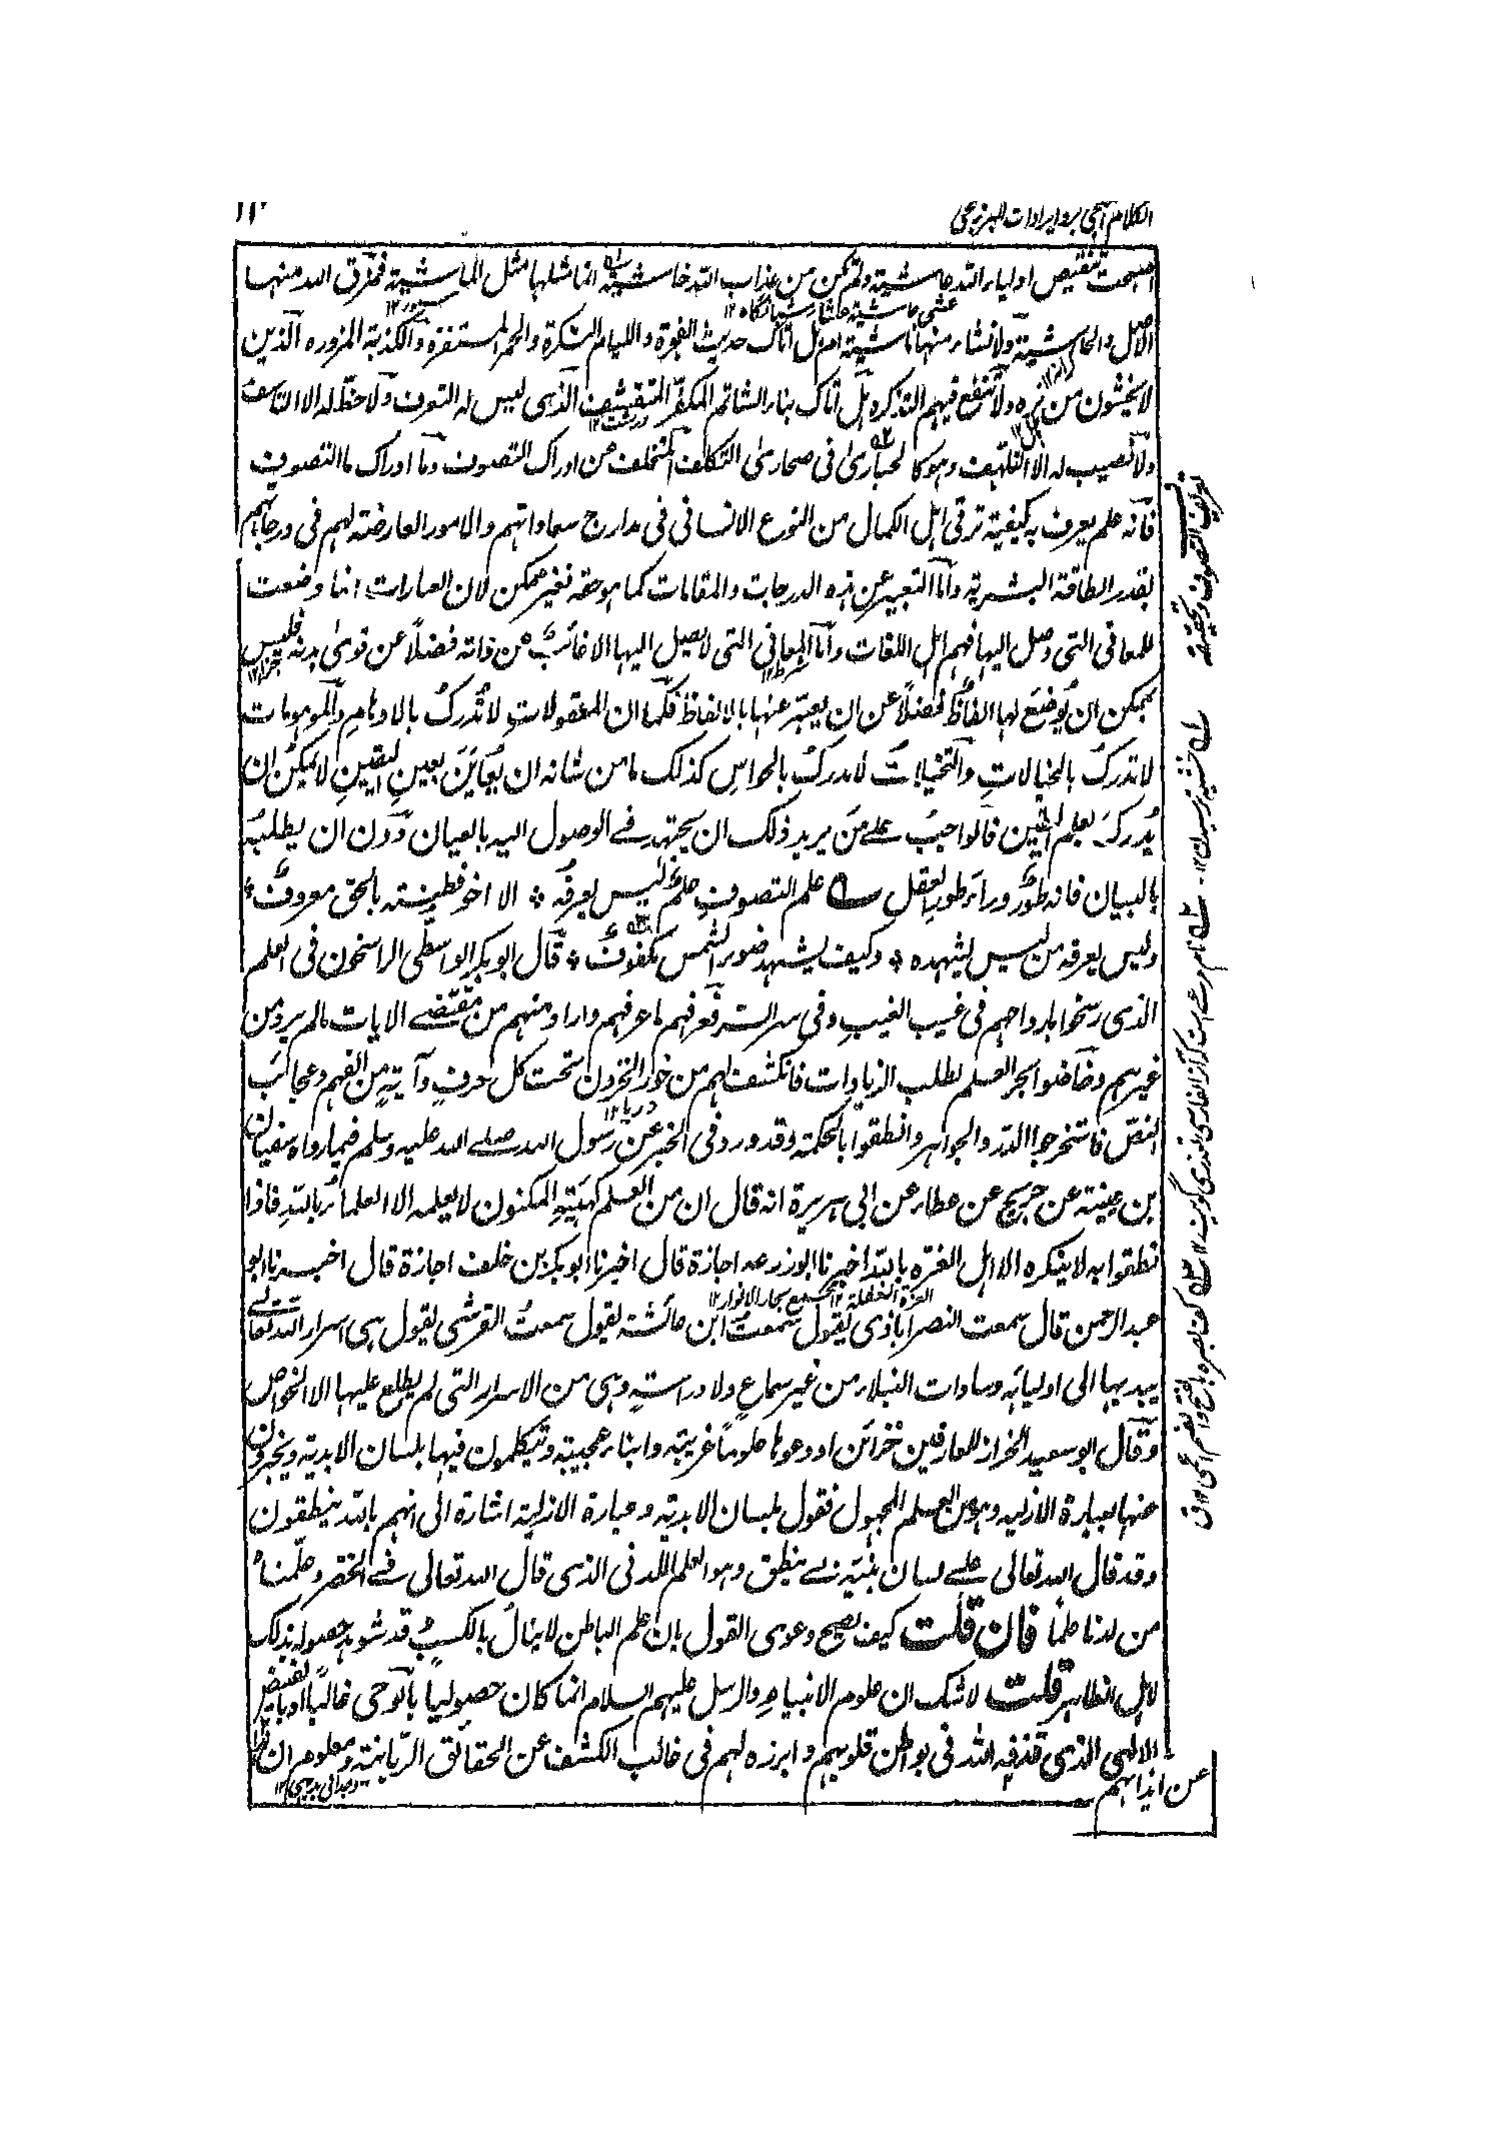 الكلام المنجي برد ايرادات البرزنجي
١٢
اصبحت تنقيص اولياء اللہ ماشية ولم تكن من عذاب اللہ خاشية انما مثلها مثل الماشية فمزق اللہ منها
الاصل والحاشية ولانشاء منها ناشية ام ہل اتاك حديث الفجرة واللئام النكرة والحمر المستنفرة والكذبة المزوره الذين
لا يخشون من ولا تنفع فيهم التذكره بل اتاك بناء الشاتم المكفر المتقشف الذى ليس له التعرف ولا حظ له الا التاسف
ولا نصيب له الا التلهف وہو كالحبارىٰ فى صحارىٰ التكلف المتخلف من ادراك التصوف وما ادراك ما التصوف
فانه علم يعرف به كيفية ترقى اہل الكمال من النوع الانسانى فى مدارج سعاداتهم والامور العارضة لهم فى درجاتهم
بقدر الطاقة البشرية واما التعبير عن ہذه الدرجات والمقامات كما ہو حقه فغير ممكن لان العبارات انما وضعت
للمعانى التى وصل اليها فهم اہل اللغات واما المعانى التى لا يصل اليها الا غائب عن ذاته فضلاً عن قوىٰ بدنه فليس
بممكن ان يوضع لها الفاظ فضلاً عن ان يعبّر عنها بالالفاظ فكما ان المعقولات لا تُدرك بالاوہام والموہومات
لا تدرك بالخيالات والتخيلات لا تدرك بالحواس كذلك ما من شانه ان يعاين بعين اليقين لا يمكن ان
يُدرك بعلم اليقين فالواجب على من يريد ذلك ان يجتهد فى الوصول اليه بالعيان دون ان يطلبه
بالبيان فانه طور وراء طور العقل علم التصوف علم ليس يعرفه ٭ الا اخو فطينة بالحق معروف ٭
وليس يعرفه من ليس يشهده ٭ وكيف يشهد ضوء الشمس مكفوف ٭ قال ابوبكر الواسطى الراسخون فى العلم
الذى رسخوا بارواحهم فى غيب الغيب وفى سر السر فعرفهم ما عرفهم واراد منهم من مقتضى الايات ما لم يرد من
غيرہم وخاضوا بحر العلم لطلب الزيادات فانكشف لهم من تحت كل حرف وآية من الفهم وعجائب
النص فاستخرجوا الدر والجواہر وانطقوا بالحكمة وقد ورد فى الخبر عن رسول اللہ صلى اللہ عليه وسلم فيما رواه سفيان
ابن عيينة عن جريج عن عطاء عن ابى ہريرة انه قال ان من العلم كهيئة المكنون لا يعلمه الا العلماء باللہ فاذا
نطقوا به لا ينكره الا اہل الغرة باللہ اخبرنا ابوزرعه اجازة قال اخبرنا ابوبكر بن خلف اجازة قال اخبرنا ابو
عبد الرحمن قال سمعت النصراباذى يقول سمعت ابن عائشة يقول سمعت القرشى يقول ہى اسرار اللہ تعالى
يبديها الى اوليائه وسادات النبلاء من غير سماع ولا دراسة وہى من الاسرار التى لم يطلع عليها الا الخواص
وقال ابو سعيد الخراز للعارفين خزائن اودعوہا علوماً غريبة وانباء عجيبة ويتكلمون فيها بلسان الابدية ويخبرون
عنها بعبارة الازلية وہو من العلم المجهول فقول بلسان الابدية وعبارة الازلية اشارة الى انهم باللہ ينطقون
وقد قال اللہ تعالى على لسان نبيه بى ينطق وہو العلم اللدنى الذى قال اللہ تعالى فى الخضر وعلّمناه
من لدنا علماً فان قلت كيف يصح دعوى القول بان علم الباطن لا ينال بالكسب قد شوہد حصوله بذلك
لاہل الظاہر قلت لا شك ان علوم الانبياء والرسل عليهم السلام انما كان حصولها بالوحى غالباً او بالفيض
الالهى الذى قذفه اللہ فى بواطن قلوبهم وابرزه لهم فى غالب الكشف عن الحقائق الربانية ومعلوم ان
عن ايذائهم
تعريف التصوف وتحقيقه